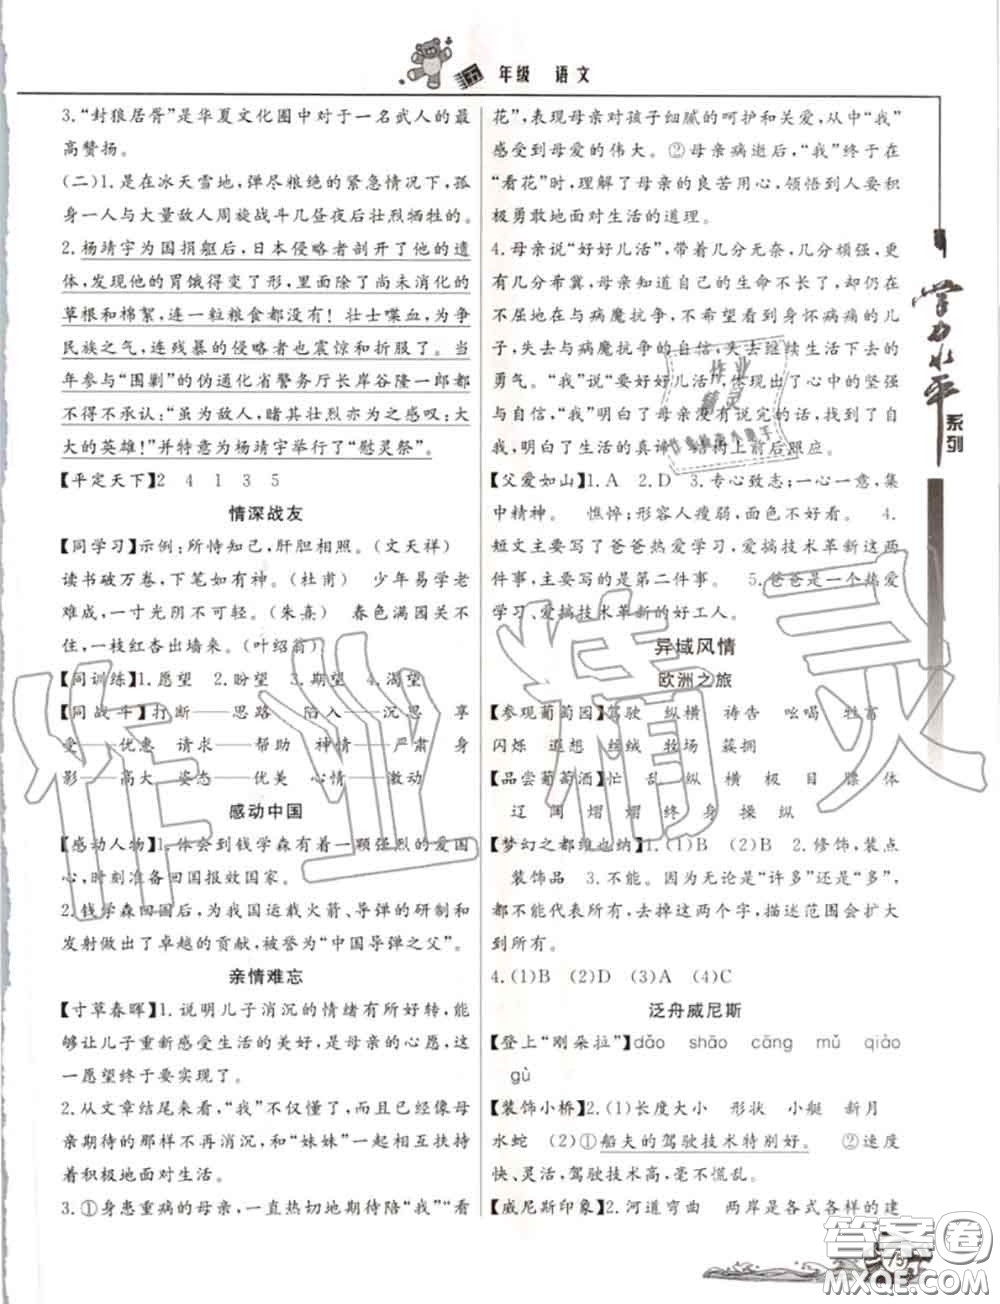 年级 语文
3.“封狼居胥”是华夏文化圈中对于一名武人的最
高赞扬。
(二)1.是在冰天雪地,弹尽粮绝的紧急情况下,孤
身一人与大量敌人周旋战斗几昼夜后壮烈牺牲的。
2.杨靖宇为国捐躯后,日本侵略者剖开了他的遗
体,发现他的胃饿得变了形,里面除了尚未消化的
草根和棉絮,连一粒粮食都没有!壮士喋血,为争
民族之气,连残暴的侵略者也震惊和折服了。当
年参与“围剿”的伪通化省警务厅长岸谷隆一郎都
不得不承认:“虽为敌人,睹其壮烈亦为之感叹:大
大的英雄!”并特意为杨靖宇举行了“慰灵祭”。
【平定天下】2 4 1 3 5
情深战友
【同学习】示例:所恃知己,肝胆相照。(文天祥)
读书破万卷,下笔如有神。(杜甫) 少年易学老
难成,一寸光阴不可轻。(朱熹) 春色满园关不
住,一枝红杏出墙来。(叶绍翁)
【同训练】1.愿望 2.盼望 3.期望 4.渴望
【同战斗】打断——思路 陷入——沉思 享
受——优惠 请求——帮助 神情——严肃 身
影——高大 姿态——优美 心情——激动
感动中国
【感动人物】1.体会到钱学森有着一颗强烈的爱国
心,时刻准备回国报效国家。
2.钱学森回国后,为我国运载火箭、导弹的研制和
发射做出了卓越的贡献,被誉为“中国导弹之父”。
亲情难忘
【寸草春晖】1.说明儿子消沉的情绪有所好转,能
够让儿子重新感受生活的美好,是母亲的心愿,这
一愿望终于要实现了。
2.从文章结尾来看,“我”不仅懂了,而且已经像母
亲期待的那样不再消沉,和“妹妹”一起相互扶持
着积极地面对生活。
3.①身患重病的母亲,一直热切地期待陪“我”“看
花”,表现母亲对孩子细腻的呵护和关爱,从中“我”
感受到母爱的伟大。②母亲病逝后,“我”终于在
“看花”时,理解了母亲的良苦用心,领悟到人要积
极勇敢地面对生活的道理。
4.母亲说“好好儿活”,带着几分无奈,几分顽强,更
有几分希冀,母亲知道自己的生命不长了,却仍在
不屈地在与病魔抗争,不希望看到身怀病痛的儿
子,失去与病魔抗争的自信,失去继续生活下去的
勇气。“我”说“要好好儿活”,体现了心中的坚强
与自信,“我”明白了母亲没有说完的话,找到了自
我,明白了生活的真谛,结构上前后照应。
【父爱如山】1.A 2.D 3.专心致志:一心一意,集
中精神。 憔悴:形容人瘦弱,面色不好看。 4.
短文主要写了爸爸热爱学习、爱搞技术革新这两
件事,主要写的是第二件事。 5.爸爸是一个热爱
学习、爱搞技术革新的好工人。
异域风情
欧洲之旅
【参观葡萄园】驾驶 纵横 祷告 吆喝 牲畜
闪烁 遐想 丝绒 牧场 簇拥
【品尝葡萄酒】忙 乱 纵 横 极 目 膘 体
辽 阔 熠 熠 终 身 操 纵
【梦幻之都维也纳】1.(1)B (2)B 2.修饰,装点
装饰品 3.不能。因为无论是“许多”还是“多”,
都不能代表所有,去掉这两个字,描述范围会扩大
到所有。
4.(1)B (2)D (3)A (4)C
泛舟威尼斯
【登上“刚朵拉”】dǎo shāo cāng mǔ qiào
gù
【装饰小桥】2.(1)长度大小 形状 小艇 新月
水蛇 (2)①船夫的驾驶技术特别好。 ②速度
快、灵活,驾驶技术高,毫不慌乱。
【威尼斯印象】2.河道弯曲 两岸是各式各样的建
学力水平
系列
作业精灵
作业
精灵
答案圈
MXQE.COM